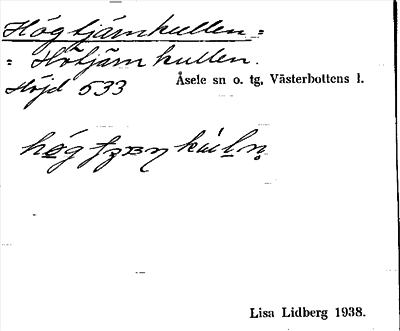 Högtjärnkullen =
= Hötjärnkullen.
Höjd 533
Åsele sn o. tg, Västerbottens l.
Lisa Lidberg 1938.